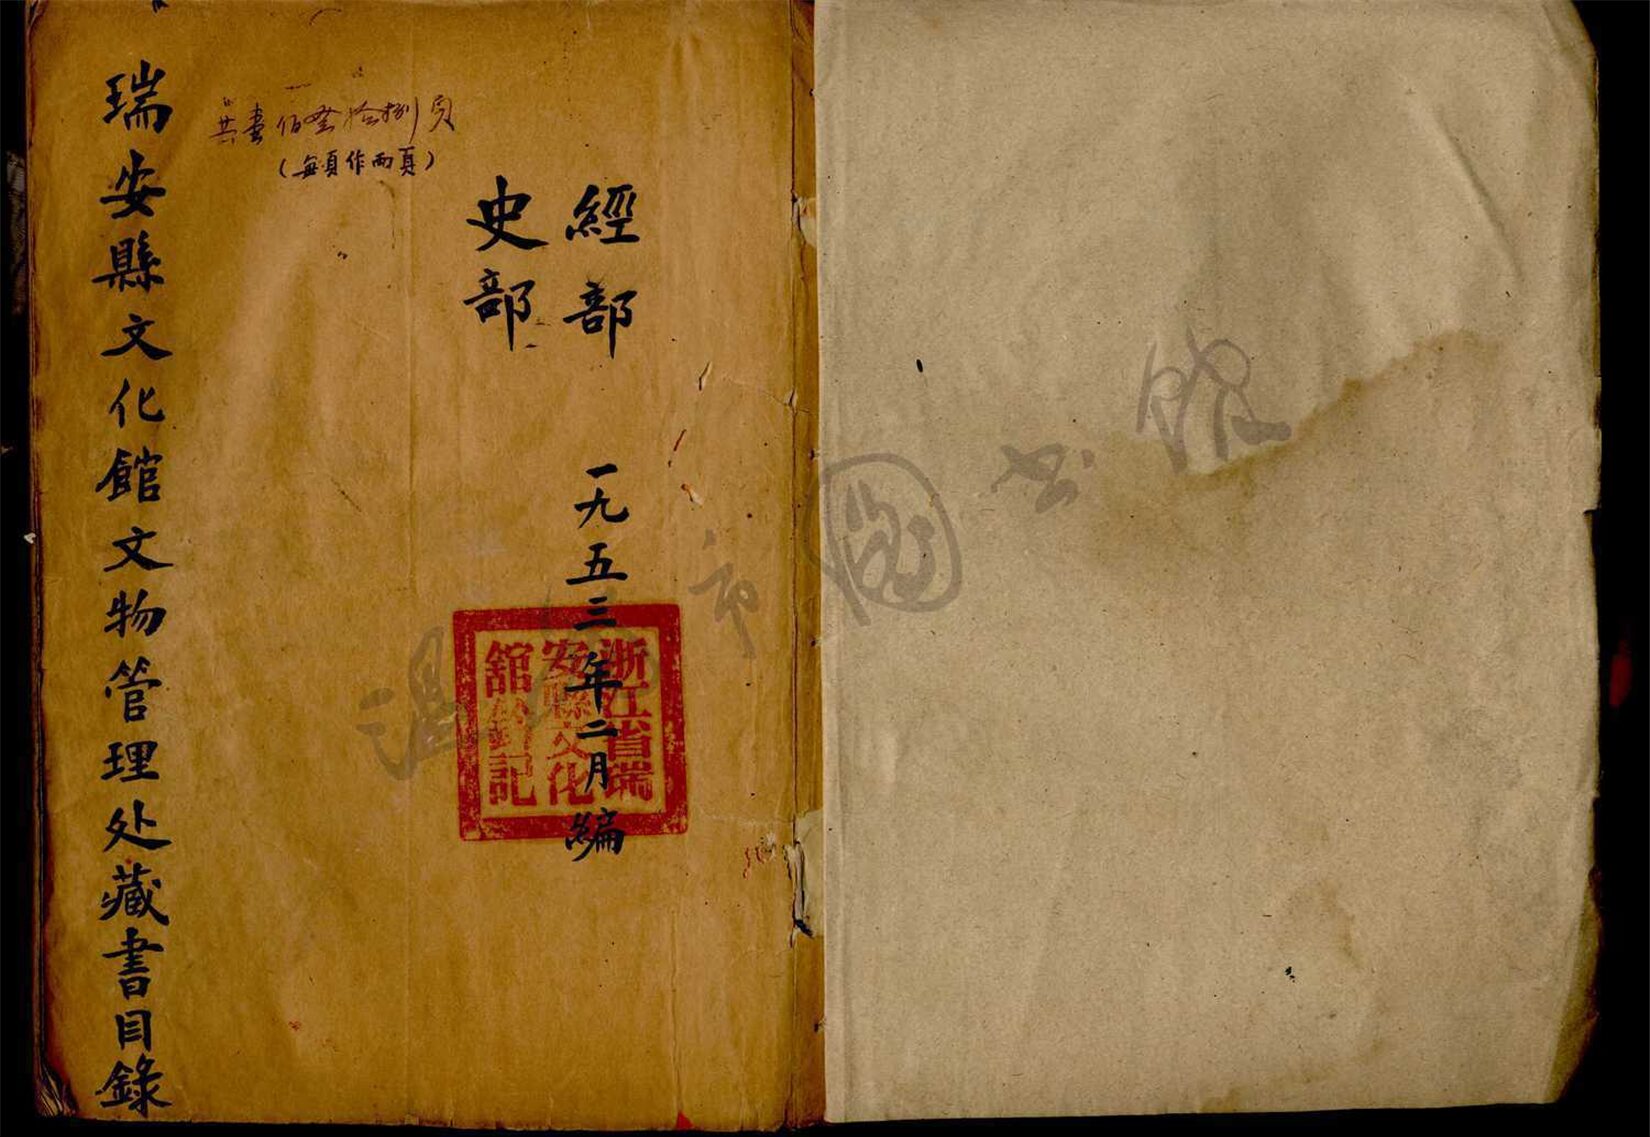 瑞安縣文化館文物管理处藏書目錄
共壹佰叁拾捌頁
(每頁作兩頁)
經部
史部
一九五三年二月編
浙江省瑞
安縣文化
館鈐記
温州市圖书館